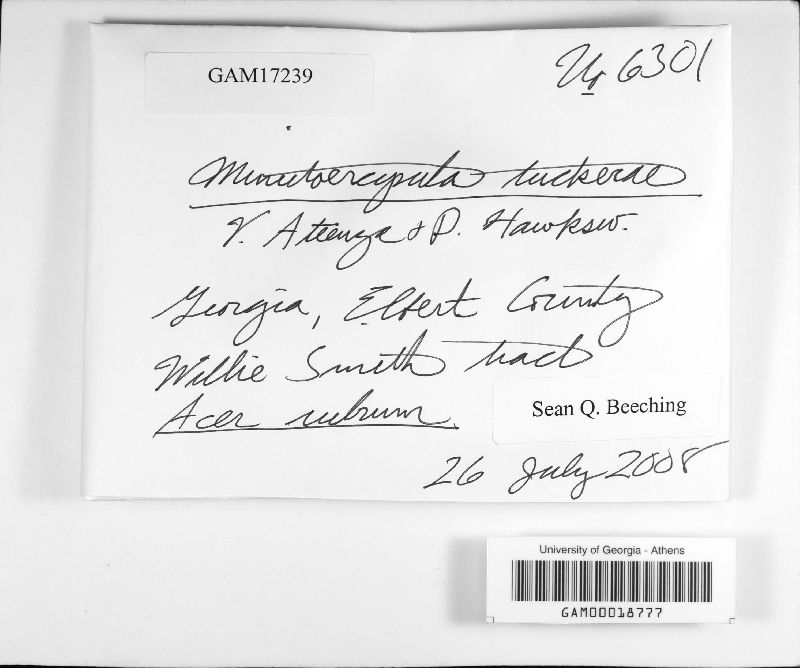 GAM17239
No 6301
Minutoexcipula tuckerae
V. Atienza & D. Hawksw.
Georgia, Elbert County
Willie Smith tract
Acer rubrum.
Sean Q. Beeching
26 July 2008
University of Georgia - Athens
GAM00018777